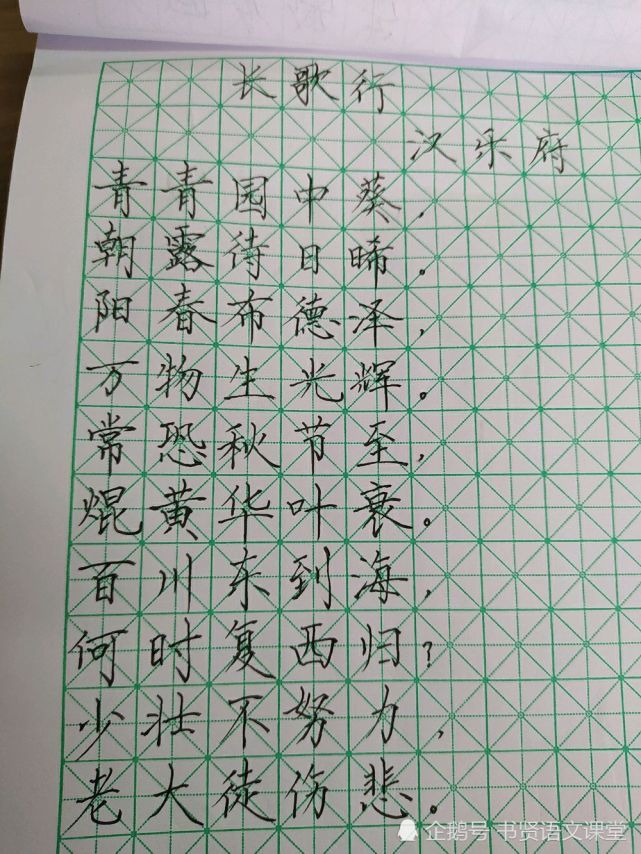 长歌行
汉乐府
青青园中葵，
朝露待日晞。
阳春布德泽，
万物生光辉。
常恐秋节至，
焜黄华叶衰。
百川东到海，
何时复西归？
少壮不努力，
老大徒伤悲。
企鹅号 书贤语文课堂